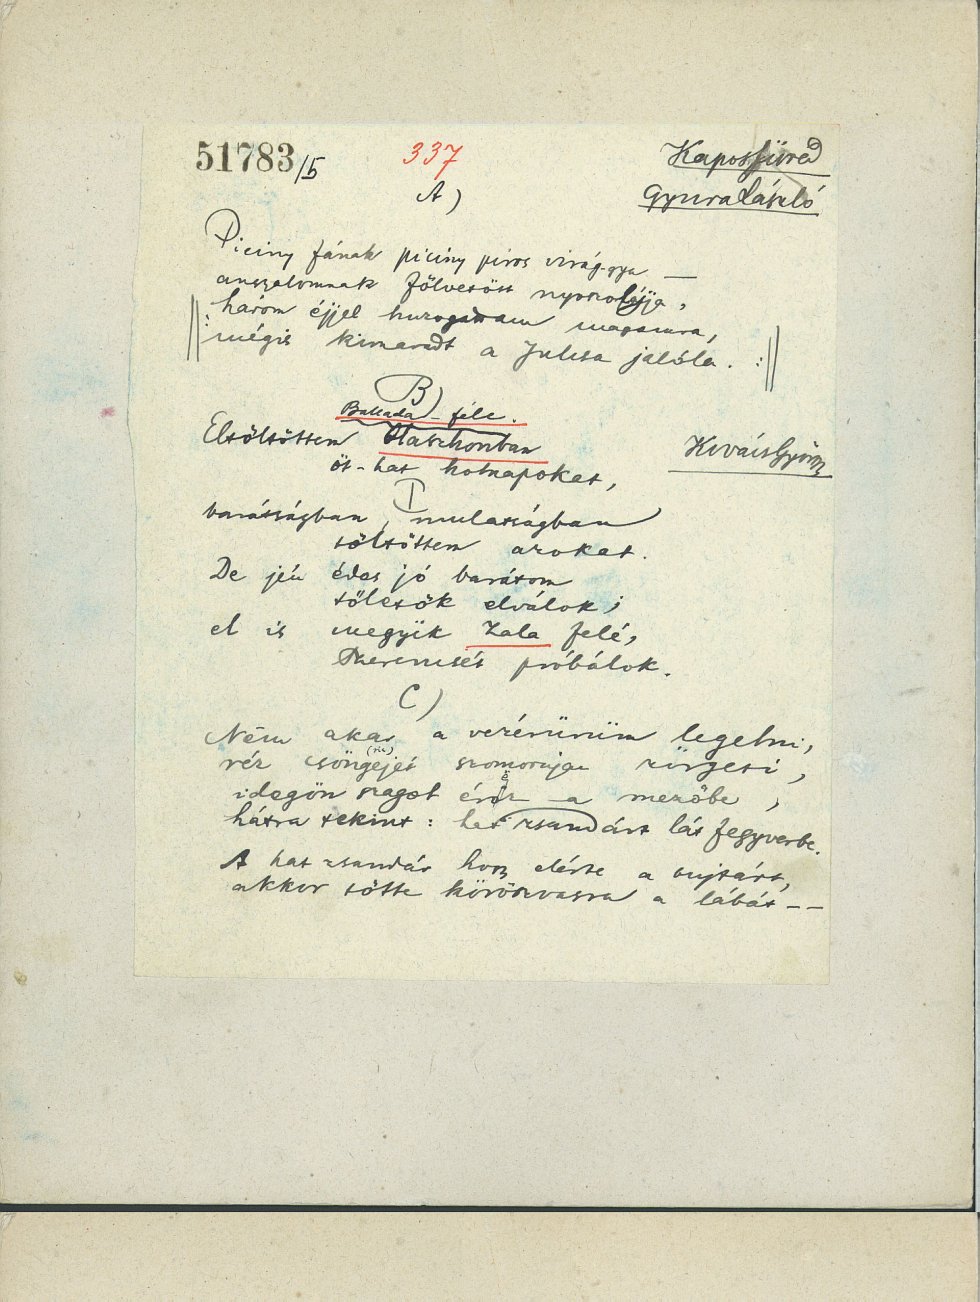 51783/b
337
Kaposfüred
Gyura László
A)
Piciny fának piciny piros virág-gya —
anszalomnak fölvetött nyoszolyája,
három éjjel huzogattam magamra,
mégis kimaradt a Julcsa jalóla.
B)
Bakada-féle.
Eltöltöttem Olaszhonban
Kovács György
öt-hat holnapokat,
barátságban, mulatságban
töltöttem azokat.
De jén édes jó barátom
töletök elválok;
el is megyük Zala felé,
Szerencsét próbálok.
C)
Něm akar a vezérürüm legelni,
réz csöngejét szomorujan zörgeti,
idegön szagot éröz a mezőbe,
hátra tekint: hat zsandárt lát fegyverbe.
A hat zsandár hogy elérte a sujtárt,
akkor tötte körözvasra a lábát --